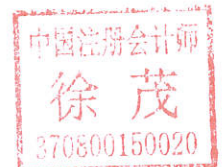 中国注册会计师
徐茂
370800150020